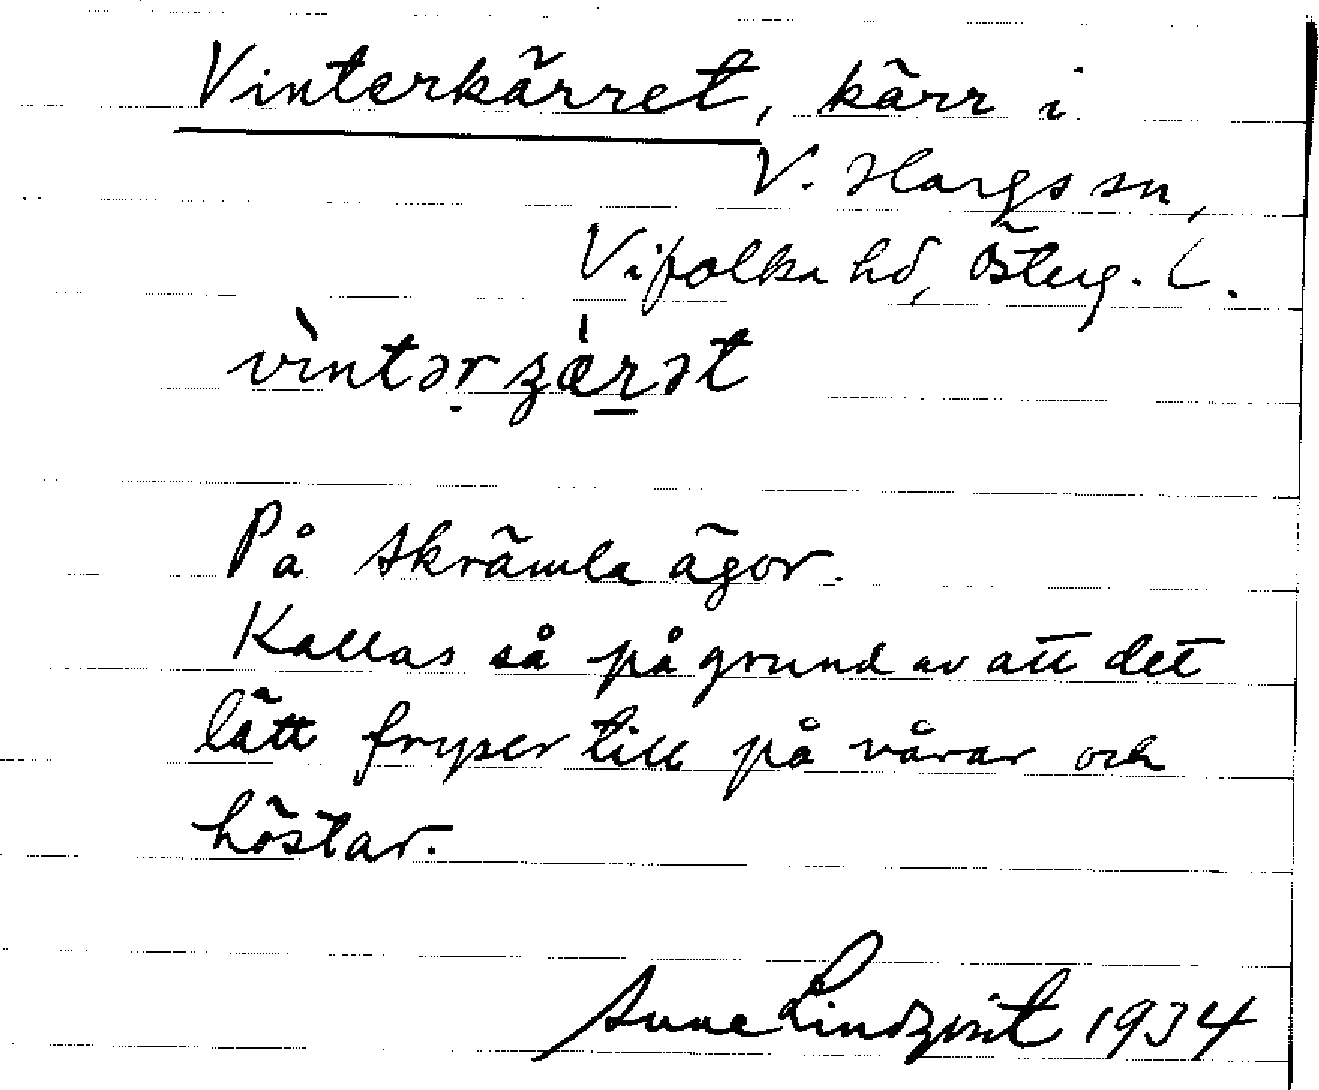 Vinterkärret, kärr i
V. Hargs sn,
Vifolka hd, Österg. L.
vìntər̤ʒæ̀r̠ət
På Skrämla ägor.
Kallas så på grund av att det
lätt fryser till på vårar och
höstar.
Lindqvist 1934